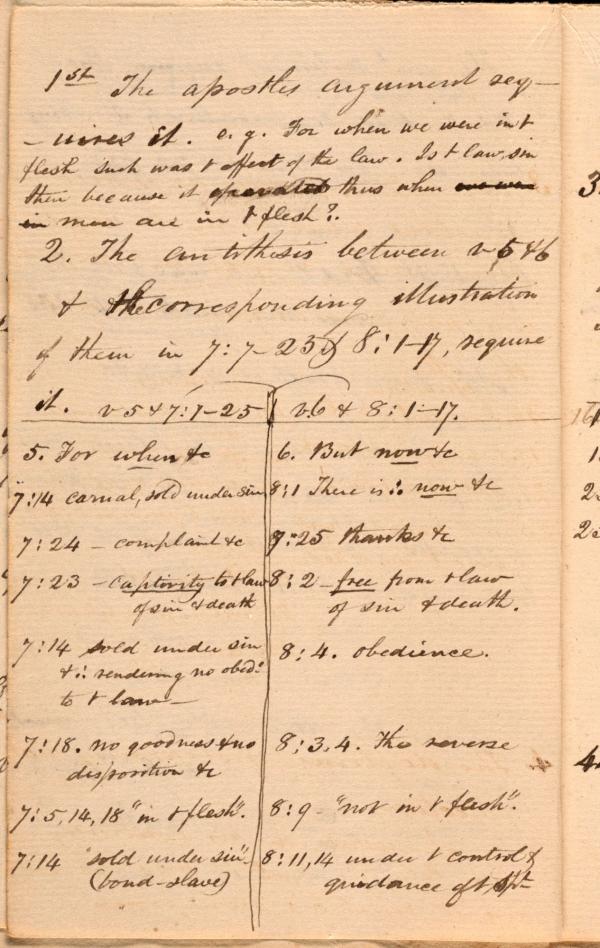 1st The apostles argument req-
-uires it. e.g. For when we were in t
flesh such was t effect of the law. Is t law, sin
then because it operated thus when we were
in men are in t flesh?.
2. The antithesis between v 5 & 6
& the corresponding illustration
of them in 7:7-25 & 8:1-17, require
it. v 5 & 7:7-25 | v.6 & 8:1-17.
5. For when &c
6. But now &c
7:14 carnal, sold under sin
8:1 There is ∴ now &c
7:24 - complaint &c
7:25 thanks &c
7:23 - captivity to t law
of sin & death
8:2 - free from t law
of sin & death.
7:14 sold under sin
& ∴ rendering no obed:
to t law -
8:4. obedience.
7:18. no goodness & no
disposition &c
8:3,4. The reverse
7:5,14,18 "in t flesh".
8:9 - "not in t flesh".
7:14 "sold under sin"-
(bond-slave)
8:11,14 under t control &
guidance of t Spt
3.
161
1
2
23
4